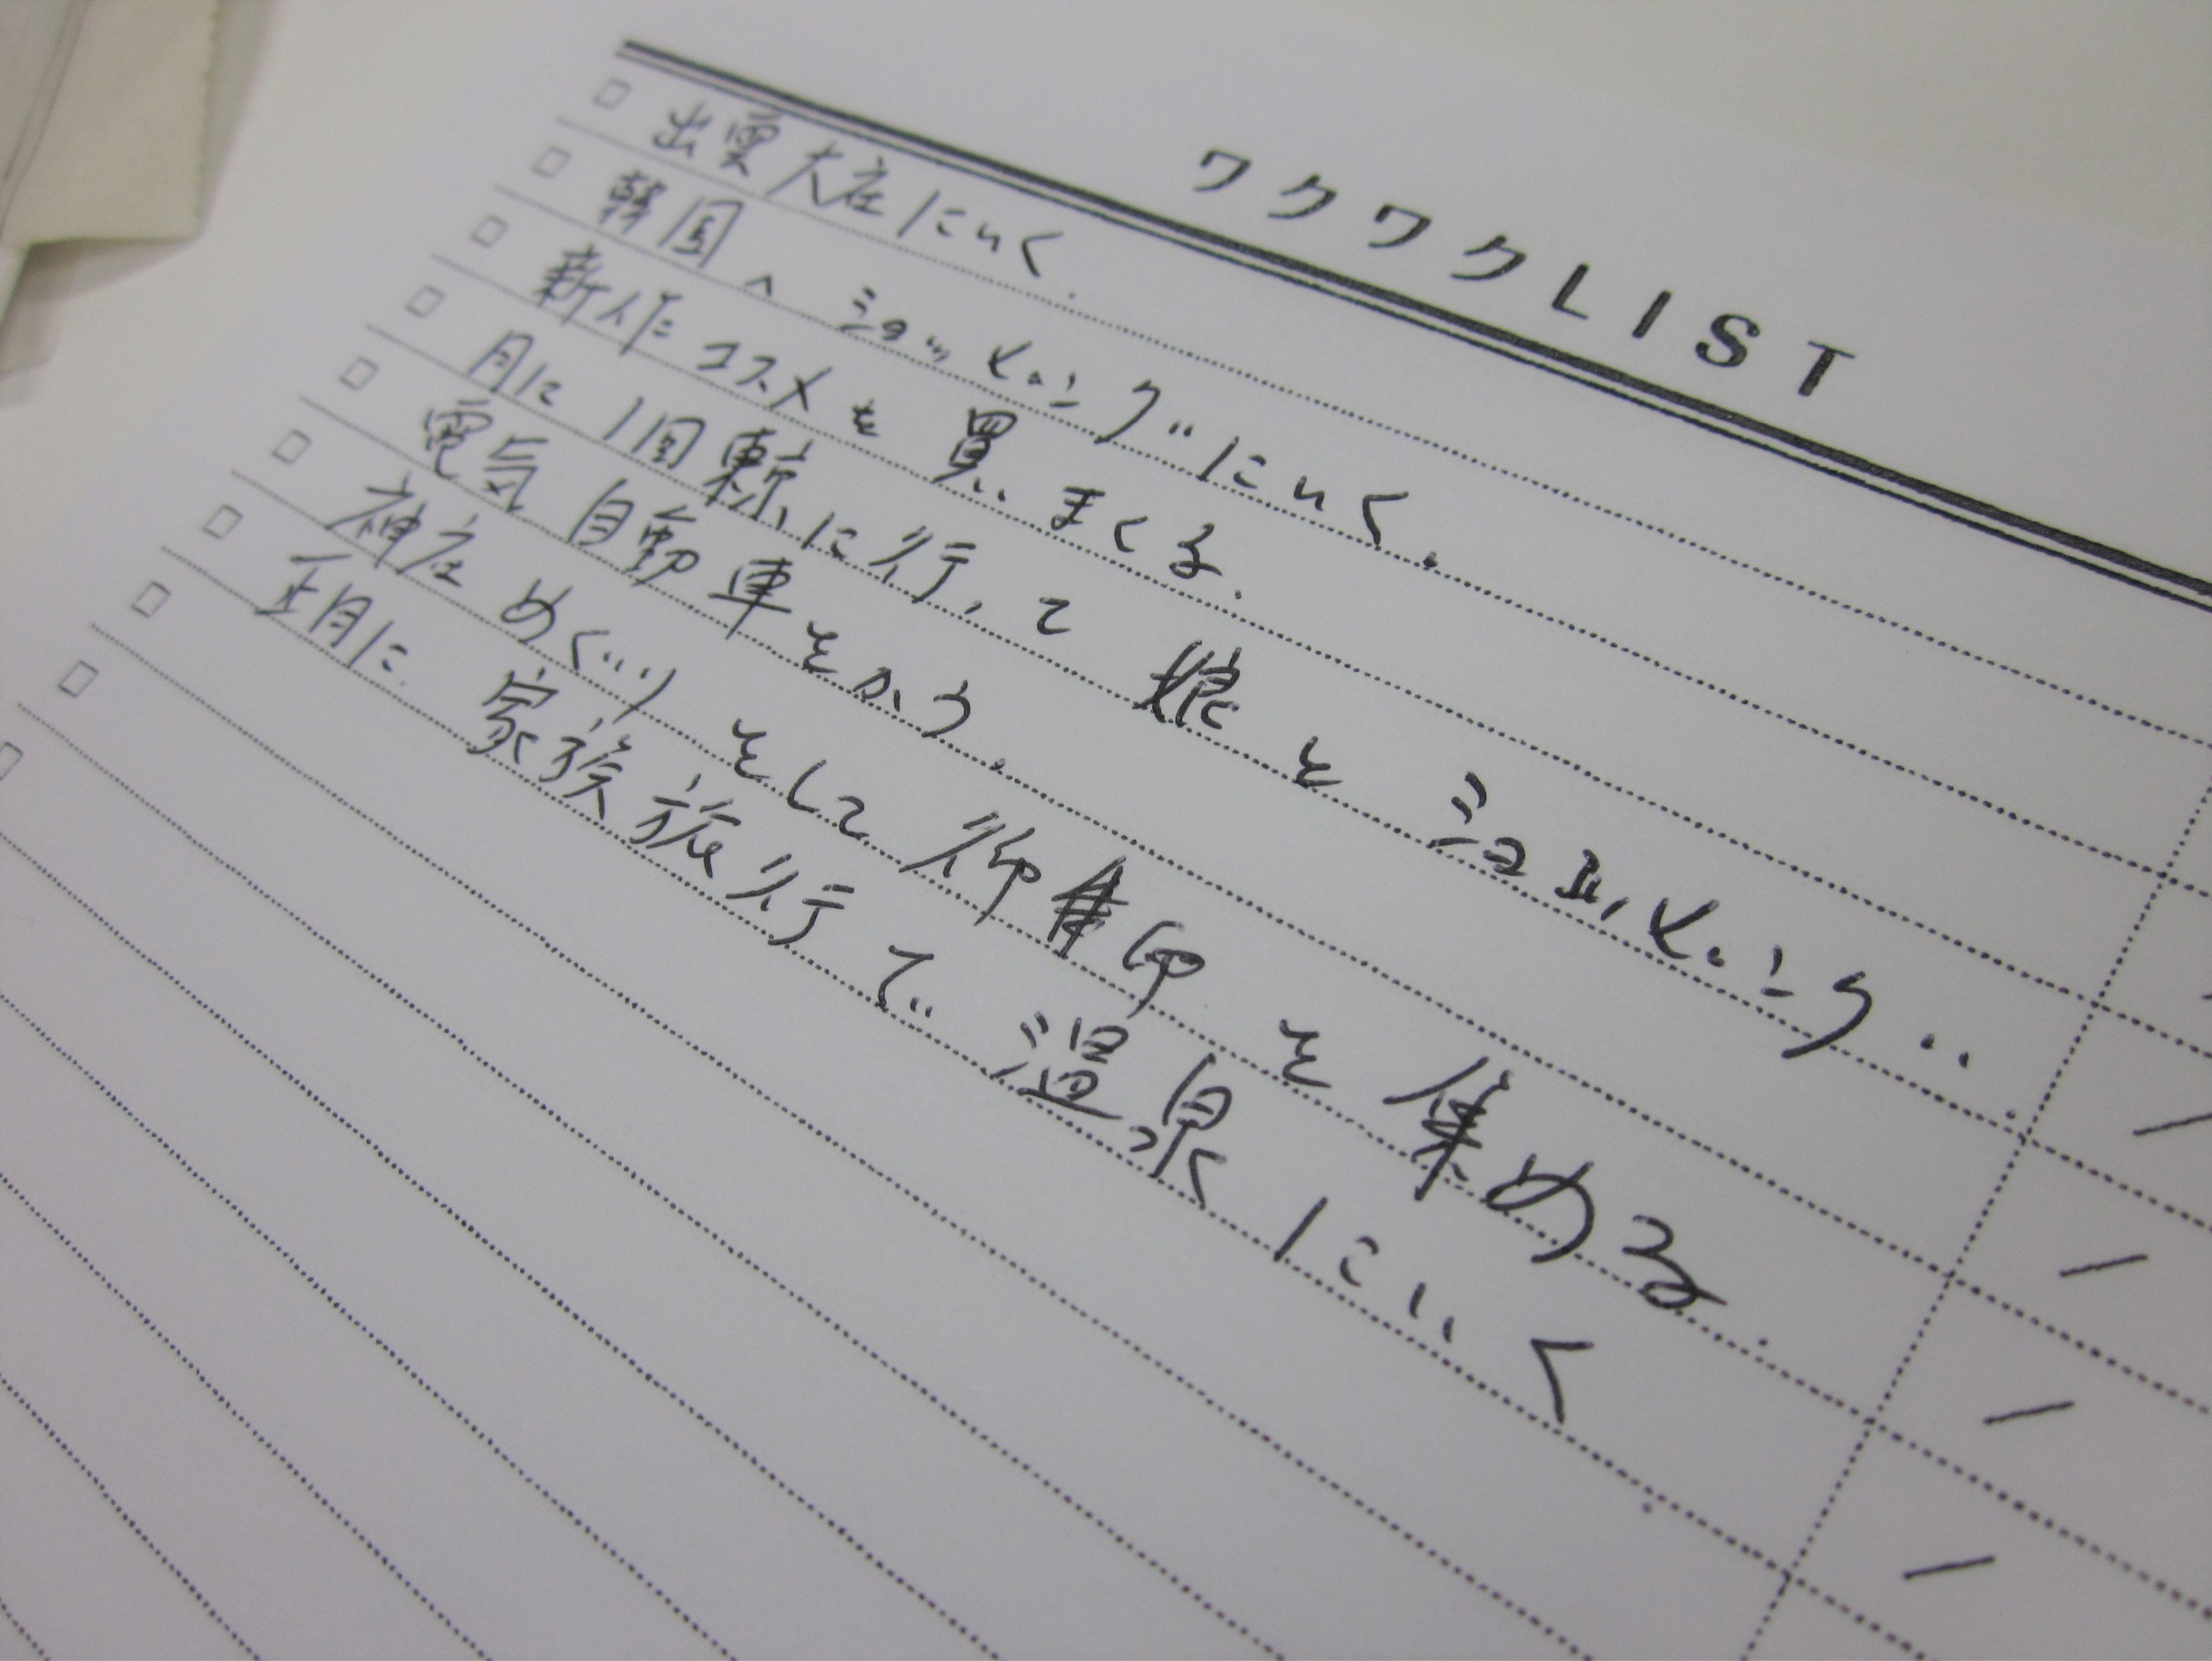 ワクワクLIST
出雲大社にいく.
韓国へショッピングにいく.
新作コスメを買いまくる.
月に1回東京に行って娘とショッピング..
電気自動車をかう.
神社めぐりそして御朱印を集める.
正月に家族旅行で温泉にいく